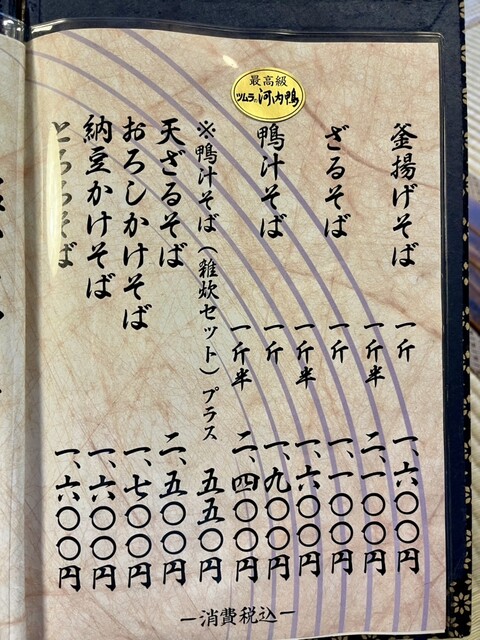 釜揚げそば 一斤 一、六〇〇円
一斤半 二、一〇〇円
ざるそば 一斤 一、一〇〇円
一斤半 一、六〇〇円
最高級
ツムラの河内鴨
鴨汁そば 一斤 一、九〇〇円
一斤半 二、四〇〇円
※鴨汁そば（雑炊セット）プラス 五五〇円
天ざるそば 二、五〇〇円
おろしかけそば 一、七〇〇円
納豆かけそば 一、六〇〇円
とろろそば 一、六〇〇円
ー消費税込ー